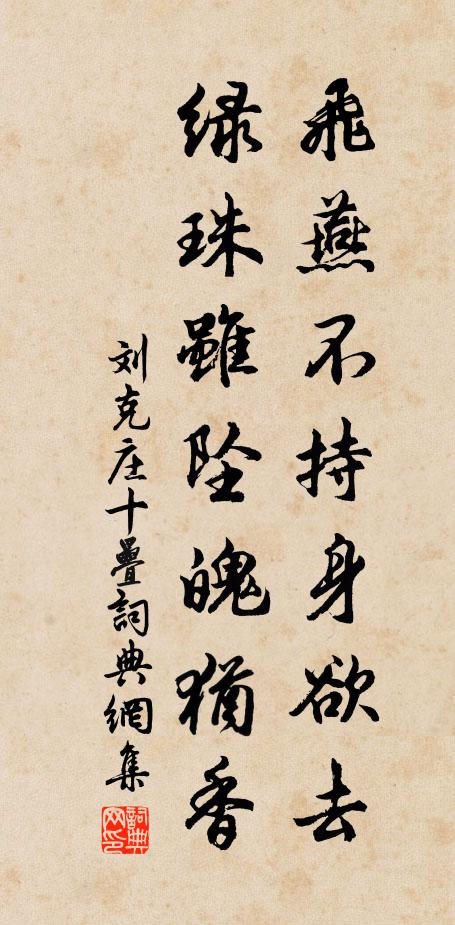 飛燕不持身欲去
緑珠雖墜魄猶香
刘克庄十疊詞典網集
詞典网印